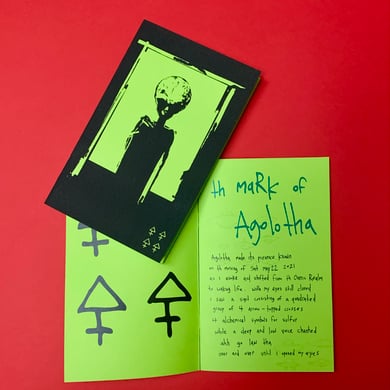 th maRk of
Agolotha
Agolotha made its presence known
on th morning of Sat may 22 2021
as i awoke and shifted from th Oneiric Realm
to waking life with my eyes still closed
i saw a sigil consisting of a quadrated
group of 4 arrow-tipped crosses
4 alchemical symbols for sulfur
while a deep and low voice chanted
ahh go law tha
over and over until i opened my eyes